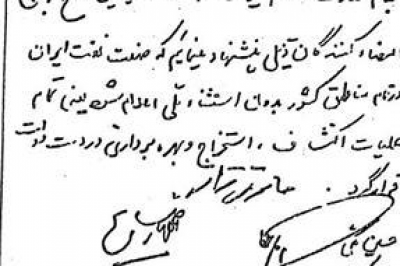 امضاء کنندگان ذیل پیشنهاد مینمائیم که صنعت نفت ایران
در تمام مناطق کشور بدون استثناء ملی اعلام شود یعنی تمام
عملیات اکتشاف ، استخراج و بهره برداری در دست دولت
قرار گیرد . حائری زاده
اللهیار صالح